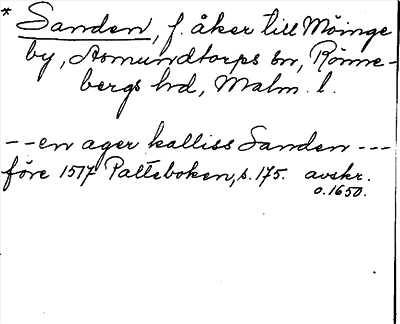 * Sanden, f. åker till Möinge
by, Asmundtorps sn, Rönne-
bergs hd, Malm. l.
-- en ager kalliss Sanden ---
före 1517 Palteboken, s. 175. avskr.
o. 1650.